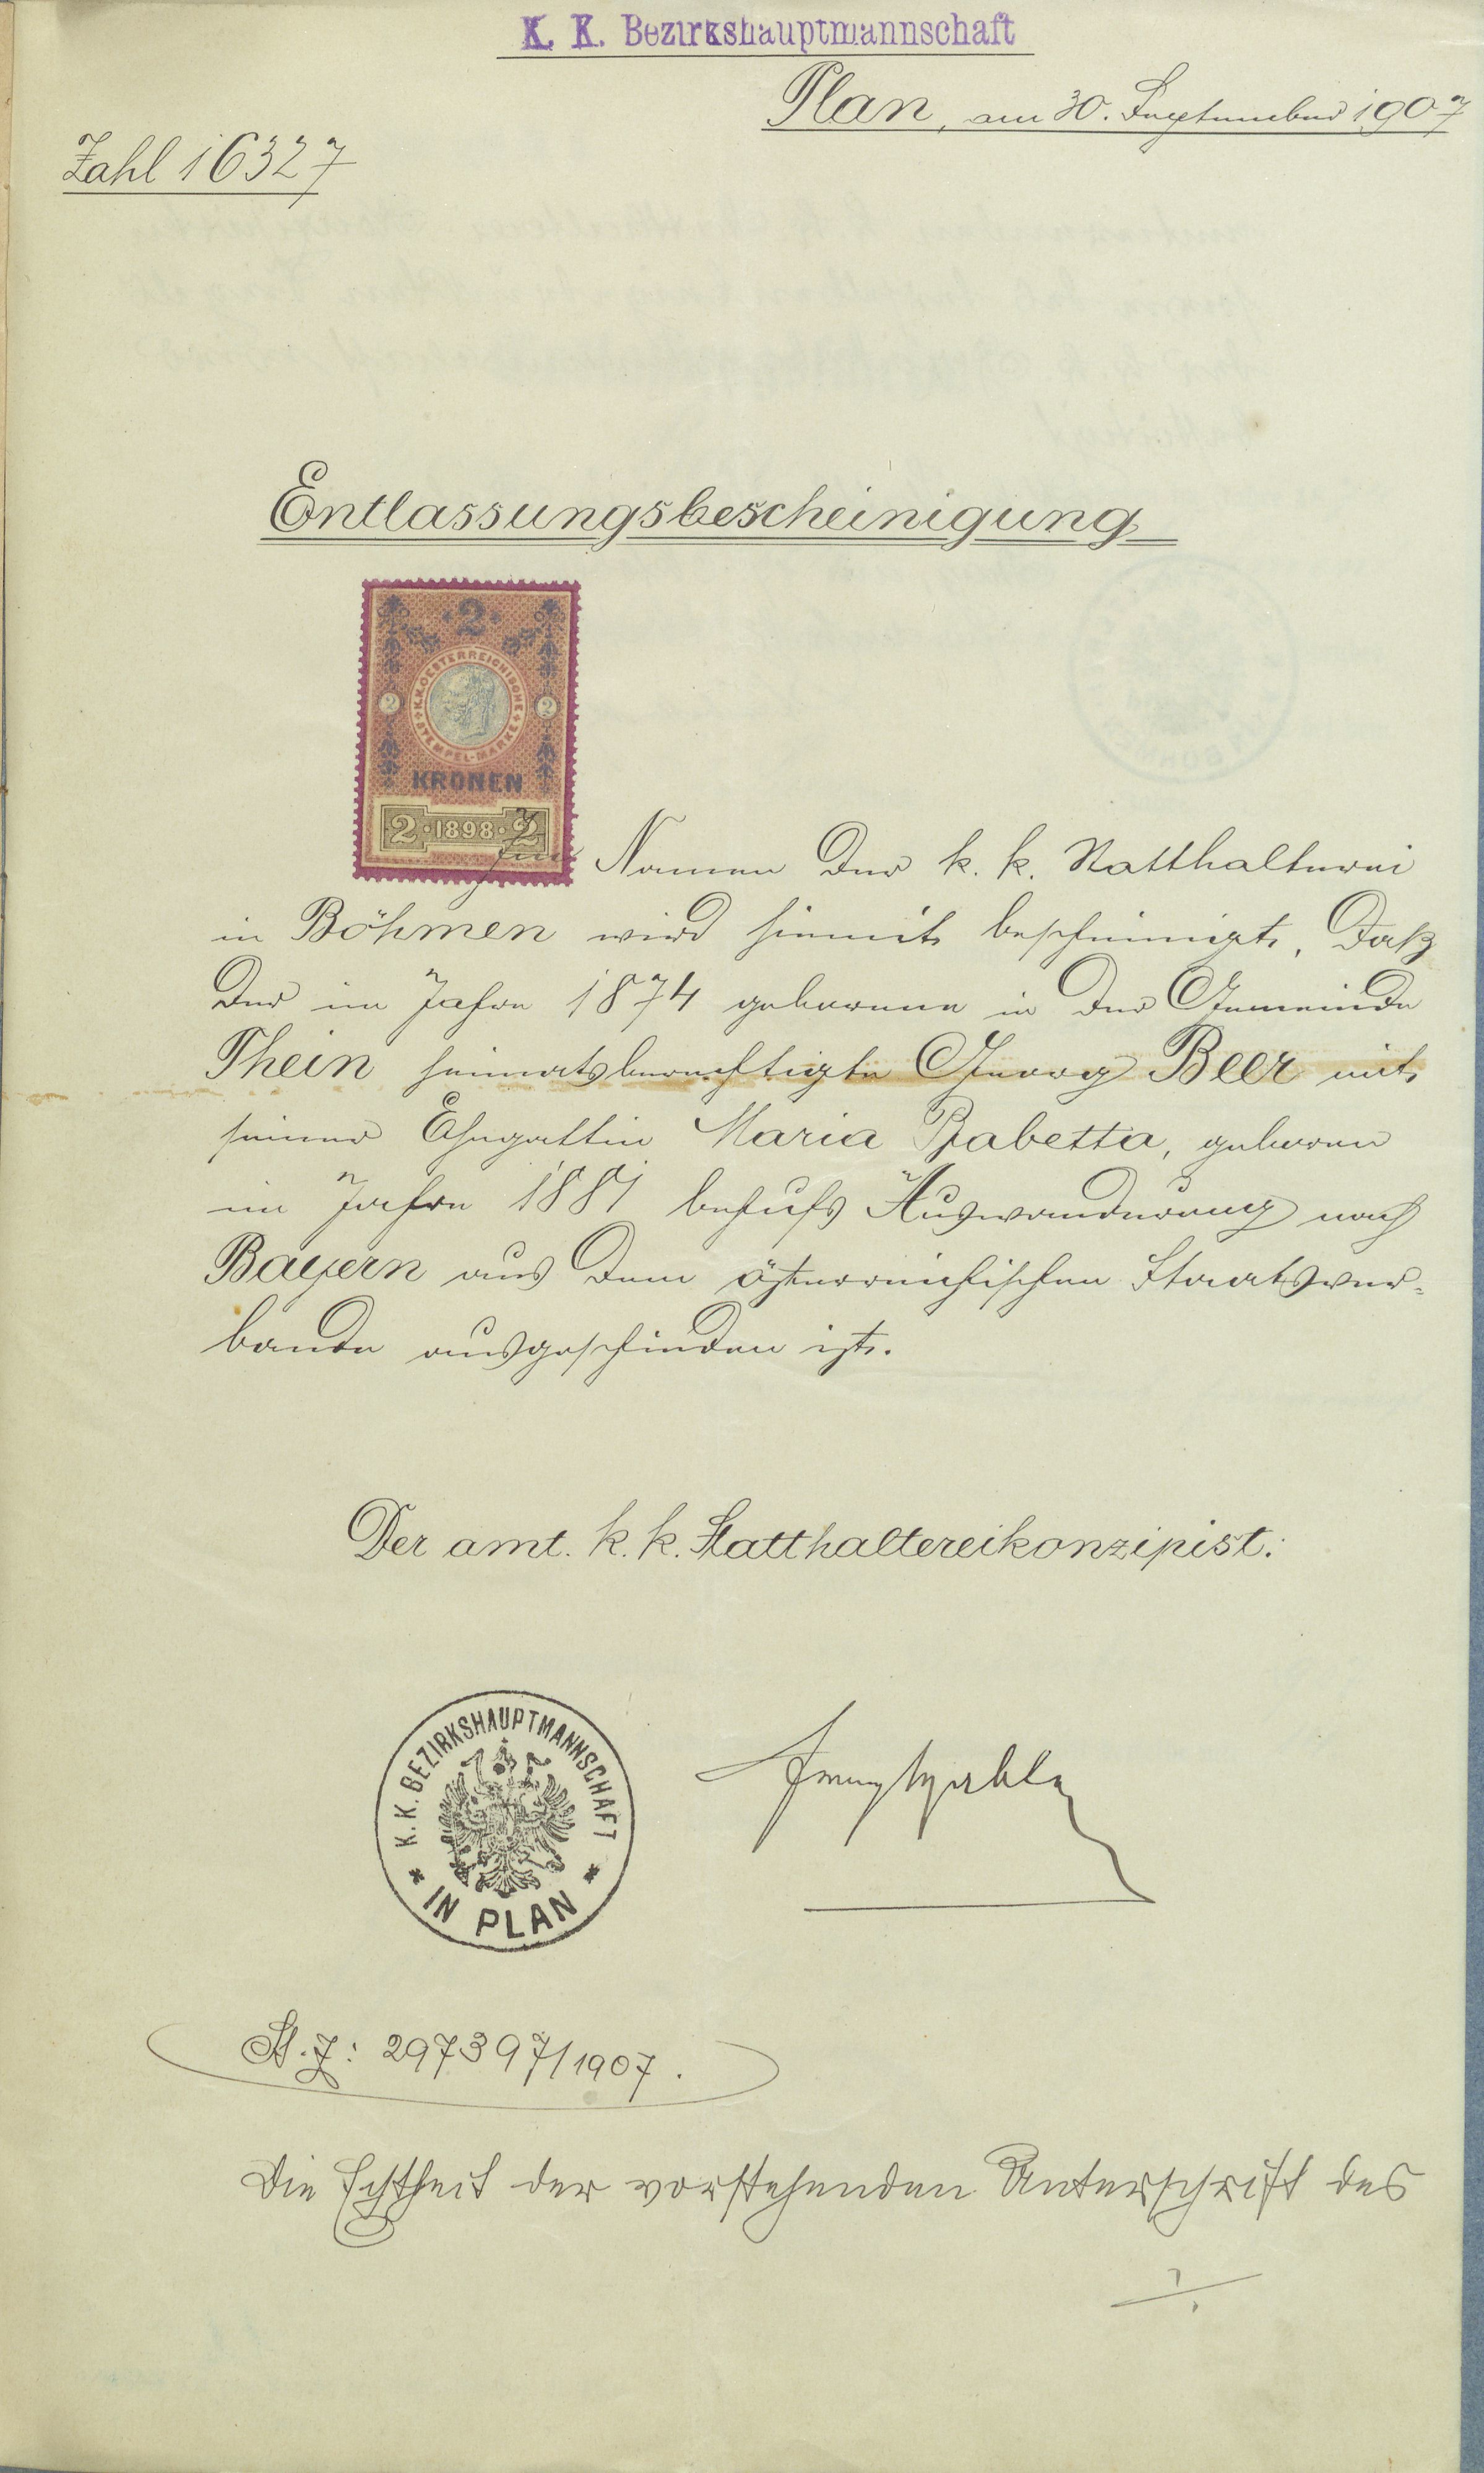 K. K. Bezirkshauptmannschaft
Plan, am 30. September 1907
Zahl 16327
Entlassungsbescheinigung
2
K.K. OESTERREICHISCHE STEMPEL-MARKE
2 2
KRONEN
2 · 1898 · 2
Im Namen der k. k. Statthalterei
in Böhmen wird hiemit bescheinigt, daß
der im Jahre 1874 geborene in der Gemeinde
Thein heimatsberechtigte Georg Beer mit
seiner Ehegattin Maria Babetta, geboren
im Jahre 1881 behufs Auswanderung nach
Bayern aus dem österreichischen Staatsver-
bande ausgeschieden ist.
Der amt. k. k. Statthaltereikonzipist:
K. K. BEZIRKSHAUPTMANNSCHAFT
* IN PLAN *
St. Z: 297397/1907.
Die Echtheit der vorstehenden Unterschrift des